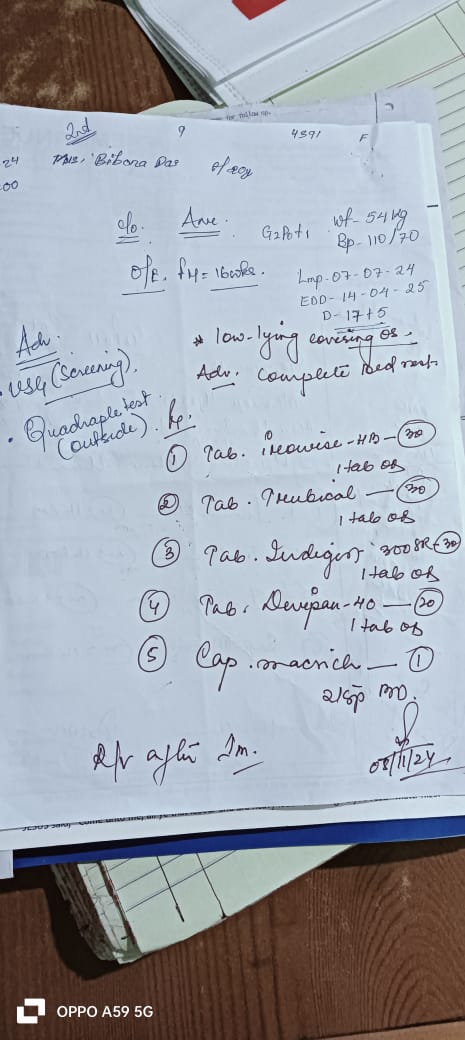 for follow up.
2nd 9 4391 F
24 Mrs. Bibora Das
00
c/o. Anc. G2P0+1 Wt- 54 kg
Bp- 110/70
O/E. fH= 16wks.
Lmp-07-07-24
EDD-14-04-25
D-17+5
Adv. * low-lying covering os.
• USG (Screening). Adv. complete bed rest.
• Quadraple test
(outside). Rx.
① Tab. -HB-30
1 tab od
② Tab. — 30
1 tab od
③ Tab. 300SR-30
1 tab od
④ Tab. Devipan-40 — 20
1 tab od
⑤ Cap. macrich — ①
2tsp BD.
R/v after 1m.
08/11/24
OPPO A59 5G